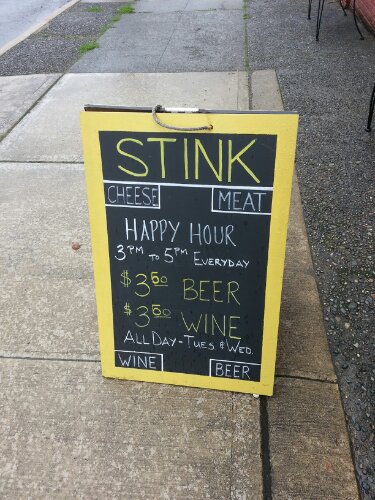 STINK
CHEESE MEAT
HAPPY HOUR
3PM TO 5PM EVERYDAY
$3.50 BEER
$3.50 WINE
ALL DAY - TUES & WED.
WINE BEER